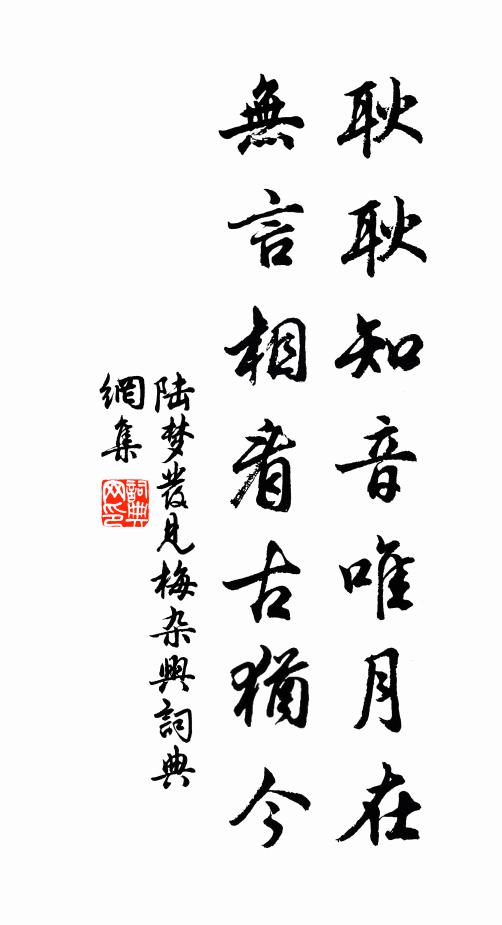 耿耿知音唯月在
無言相看古猶今
陆梦發見梅杂興詞典
網集
詞典
网印